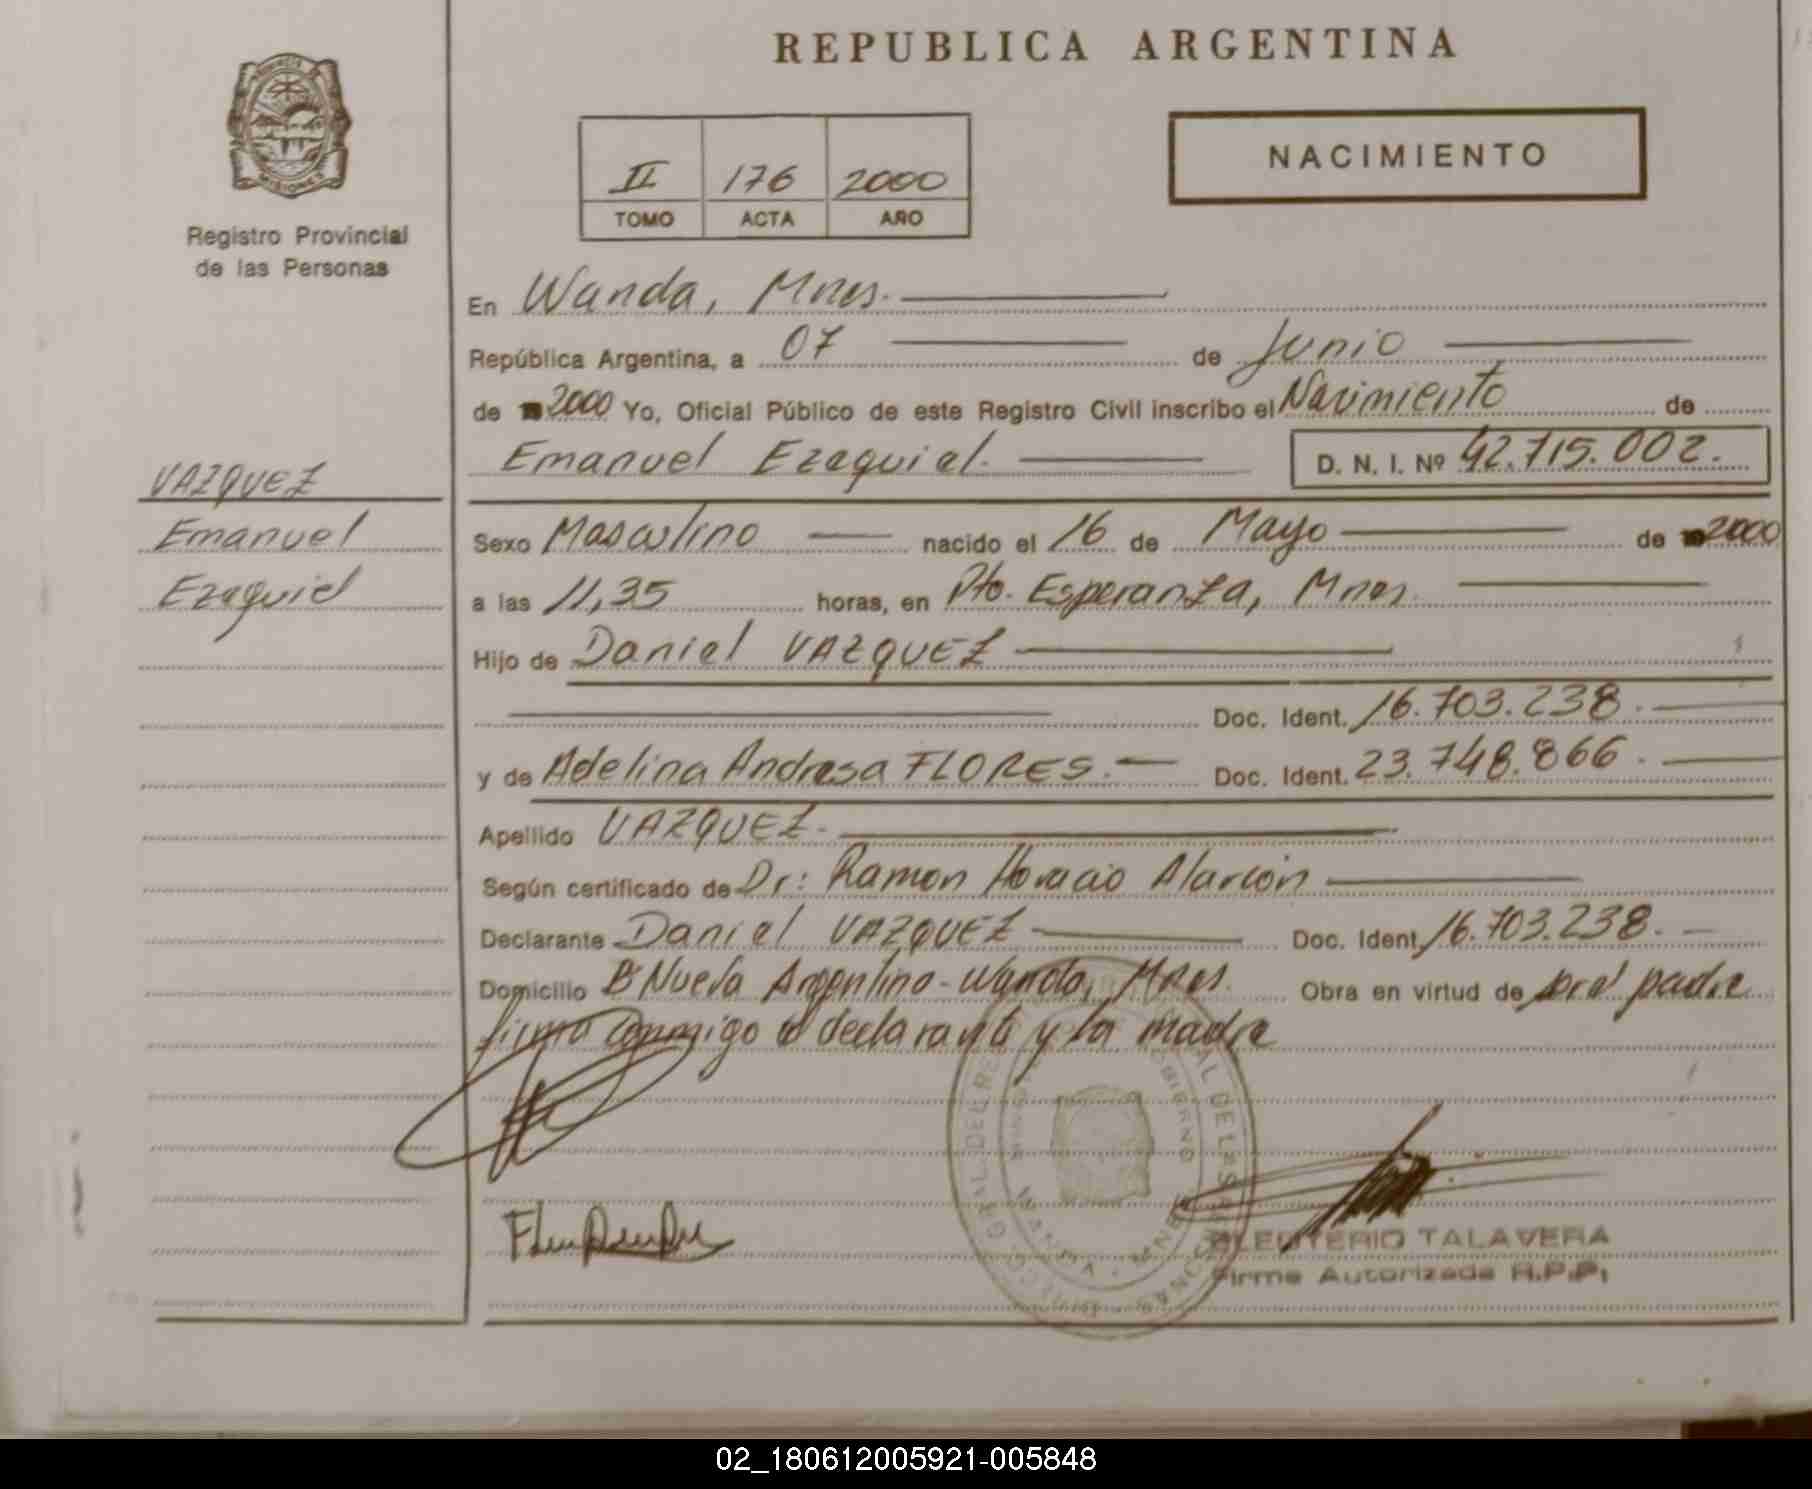 REPUBLICA ARGENTINA
MISIONES
Registro Provincial
de las Personas
II 176 2000
TOMO ACTA AÑO
NACIMIENTO
En Wanda, Mnes.
República Argentina, a 07 de Junio
de 2000 Yo, Oficial Público de este Registro Civil inscribo el Nacimiento de
Emanuel Ezequiel. D. N. I. Nº 42.715.002.
VAZQUEZ
Emanuel
Ezequiel
Sexo Masculino nacido el 16 de Mayo de 2000
a las 11,35 horas, en Pto. Esperanza, Mnes.
Hijo de Daniel VAZQUEZ
Doc. Ident. 16.703.238.
y de Adelina Andresa FLORES. Doc. Ident. 23.748.866.
Apellido VAZQUEZ.
Según certificado de Dr: Ramon Horacio Alarcón
Declarante Daniel VAZQUEZ Doc. Ident. 16.703.238.
Domicilio Bº Nueva Argentina - Wanda, Mnes. Obra en virtud de padre
firma conmigo el declarante y la madre
ELEUTERIO TALAVERA
Firma Autorizada R.P.P.
02_180612005921-005848